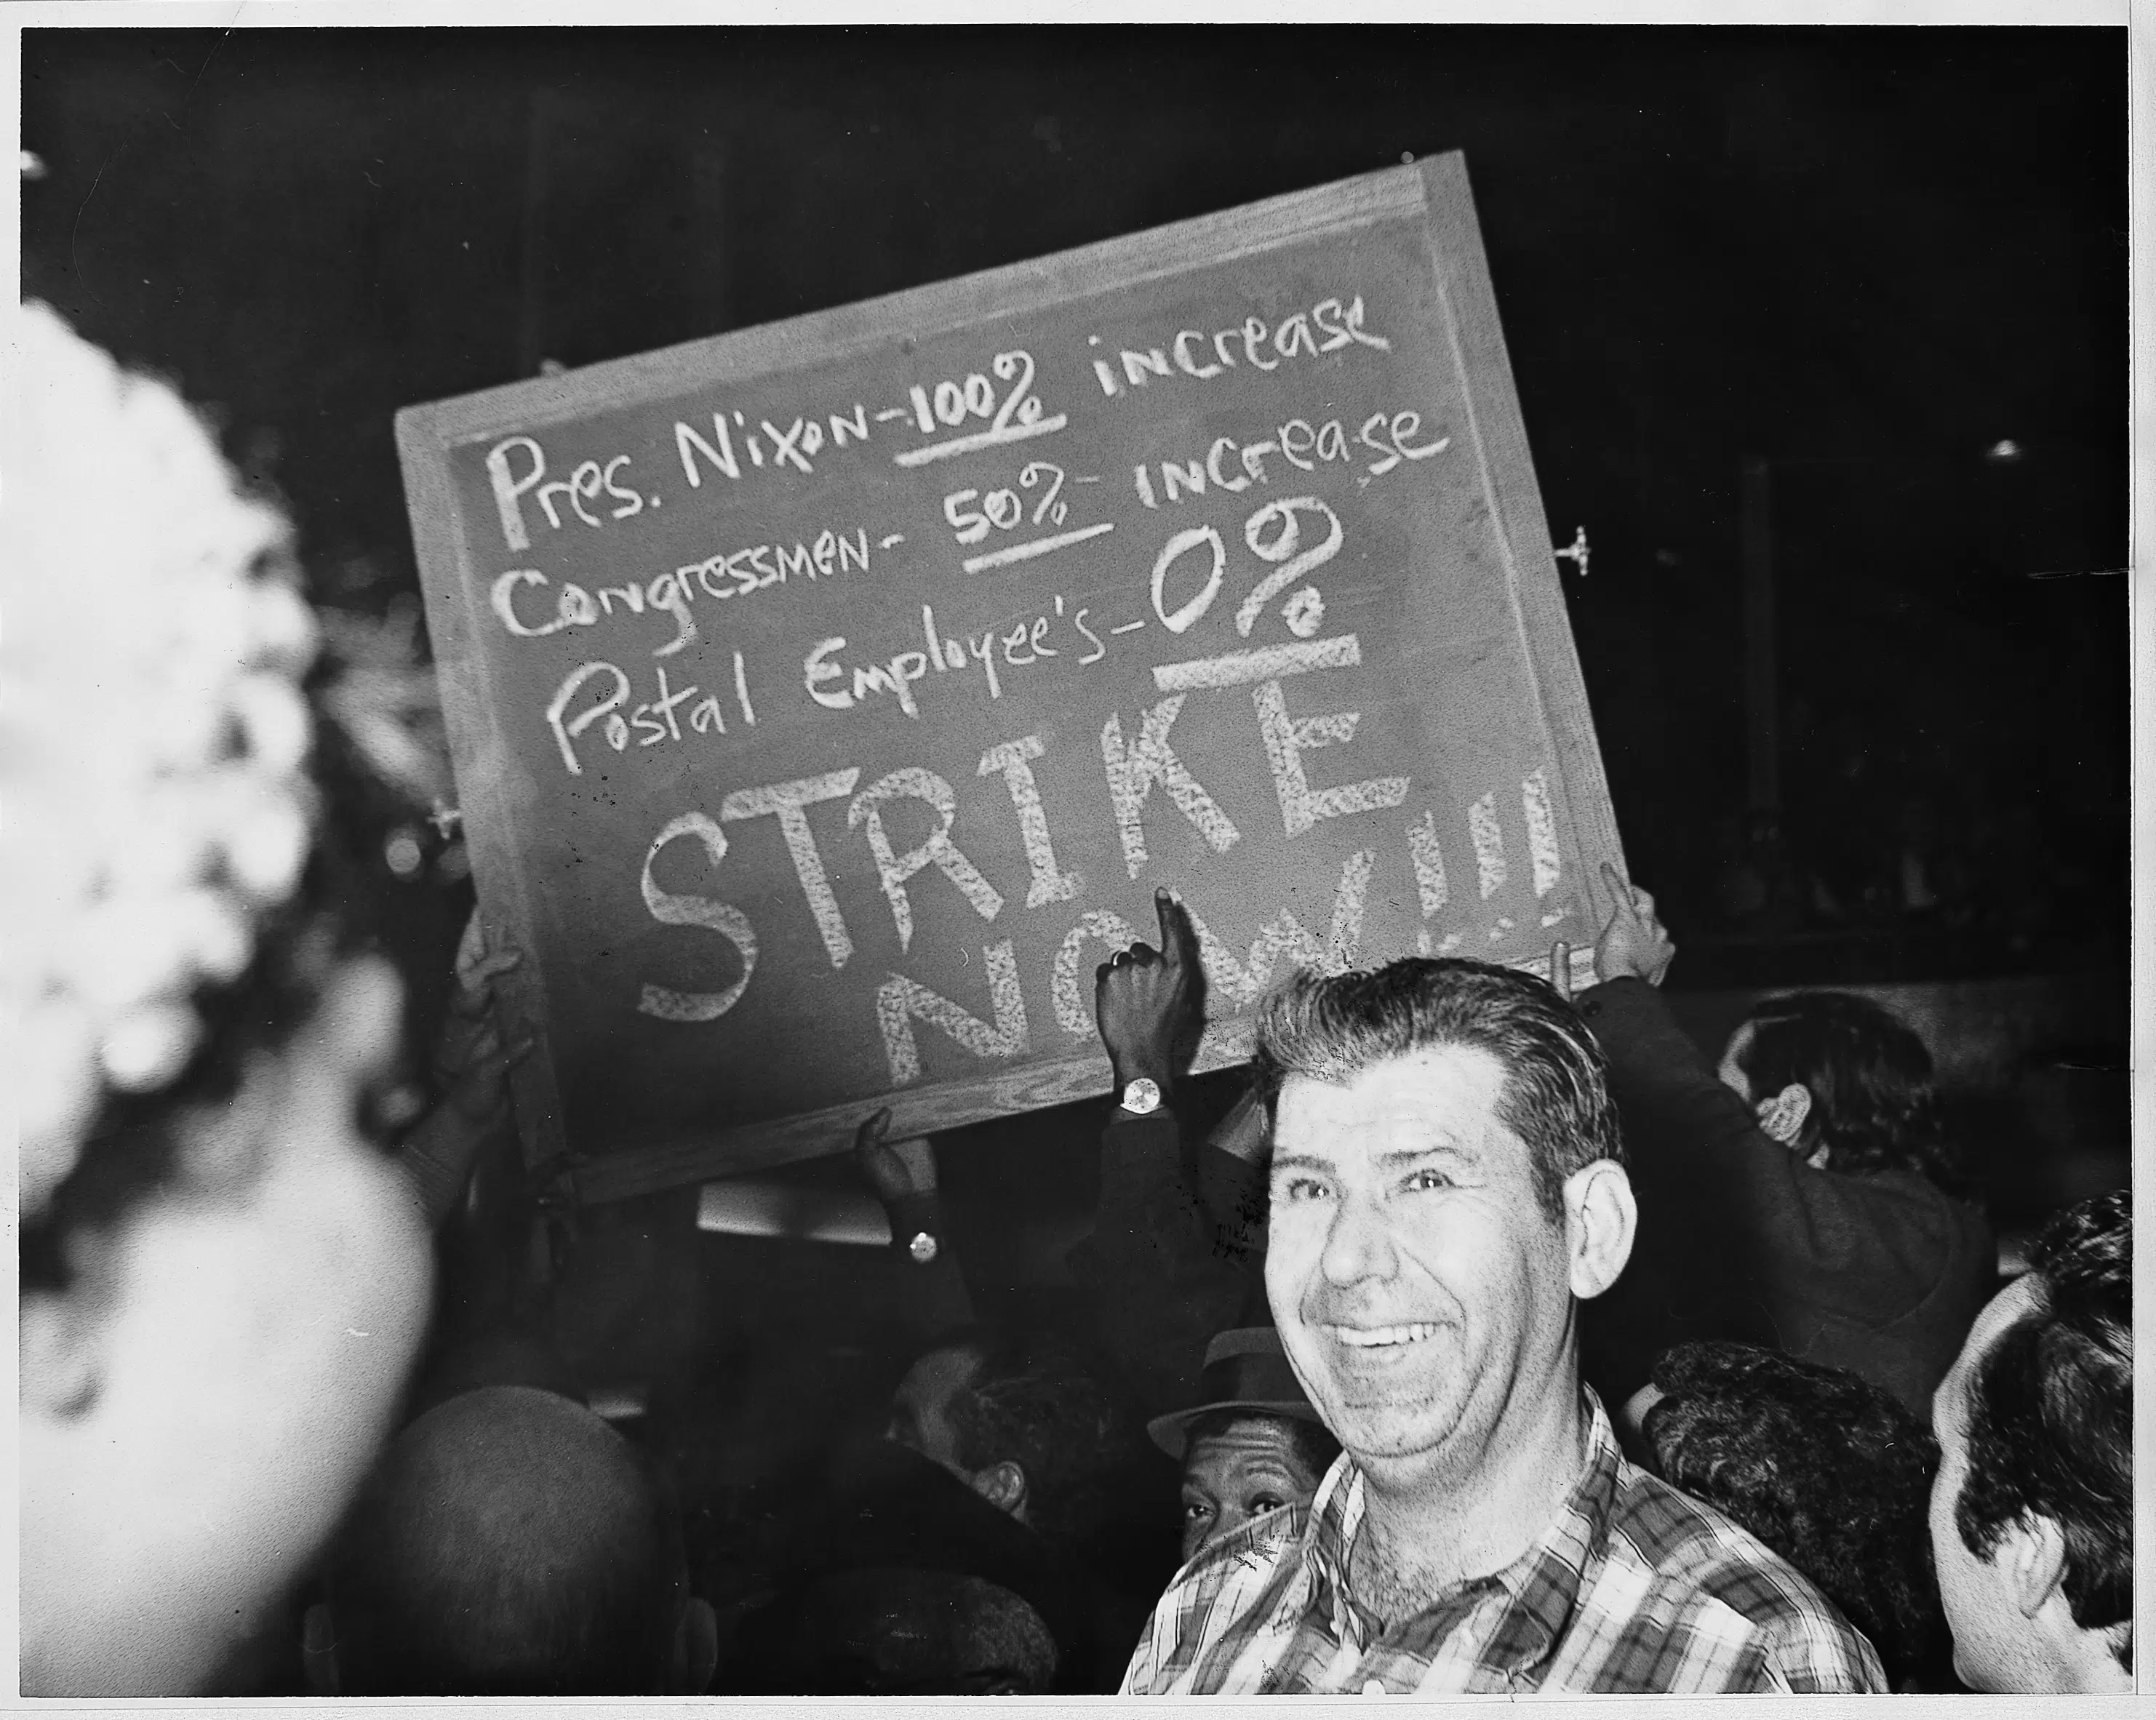 Pres. Nixon-100% increase
Congressmen- 50%- increase
Postal Employee's-0%
STRIKE
NOW!!!